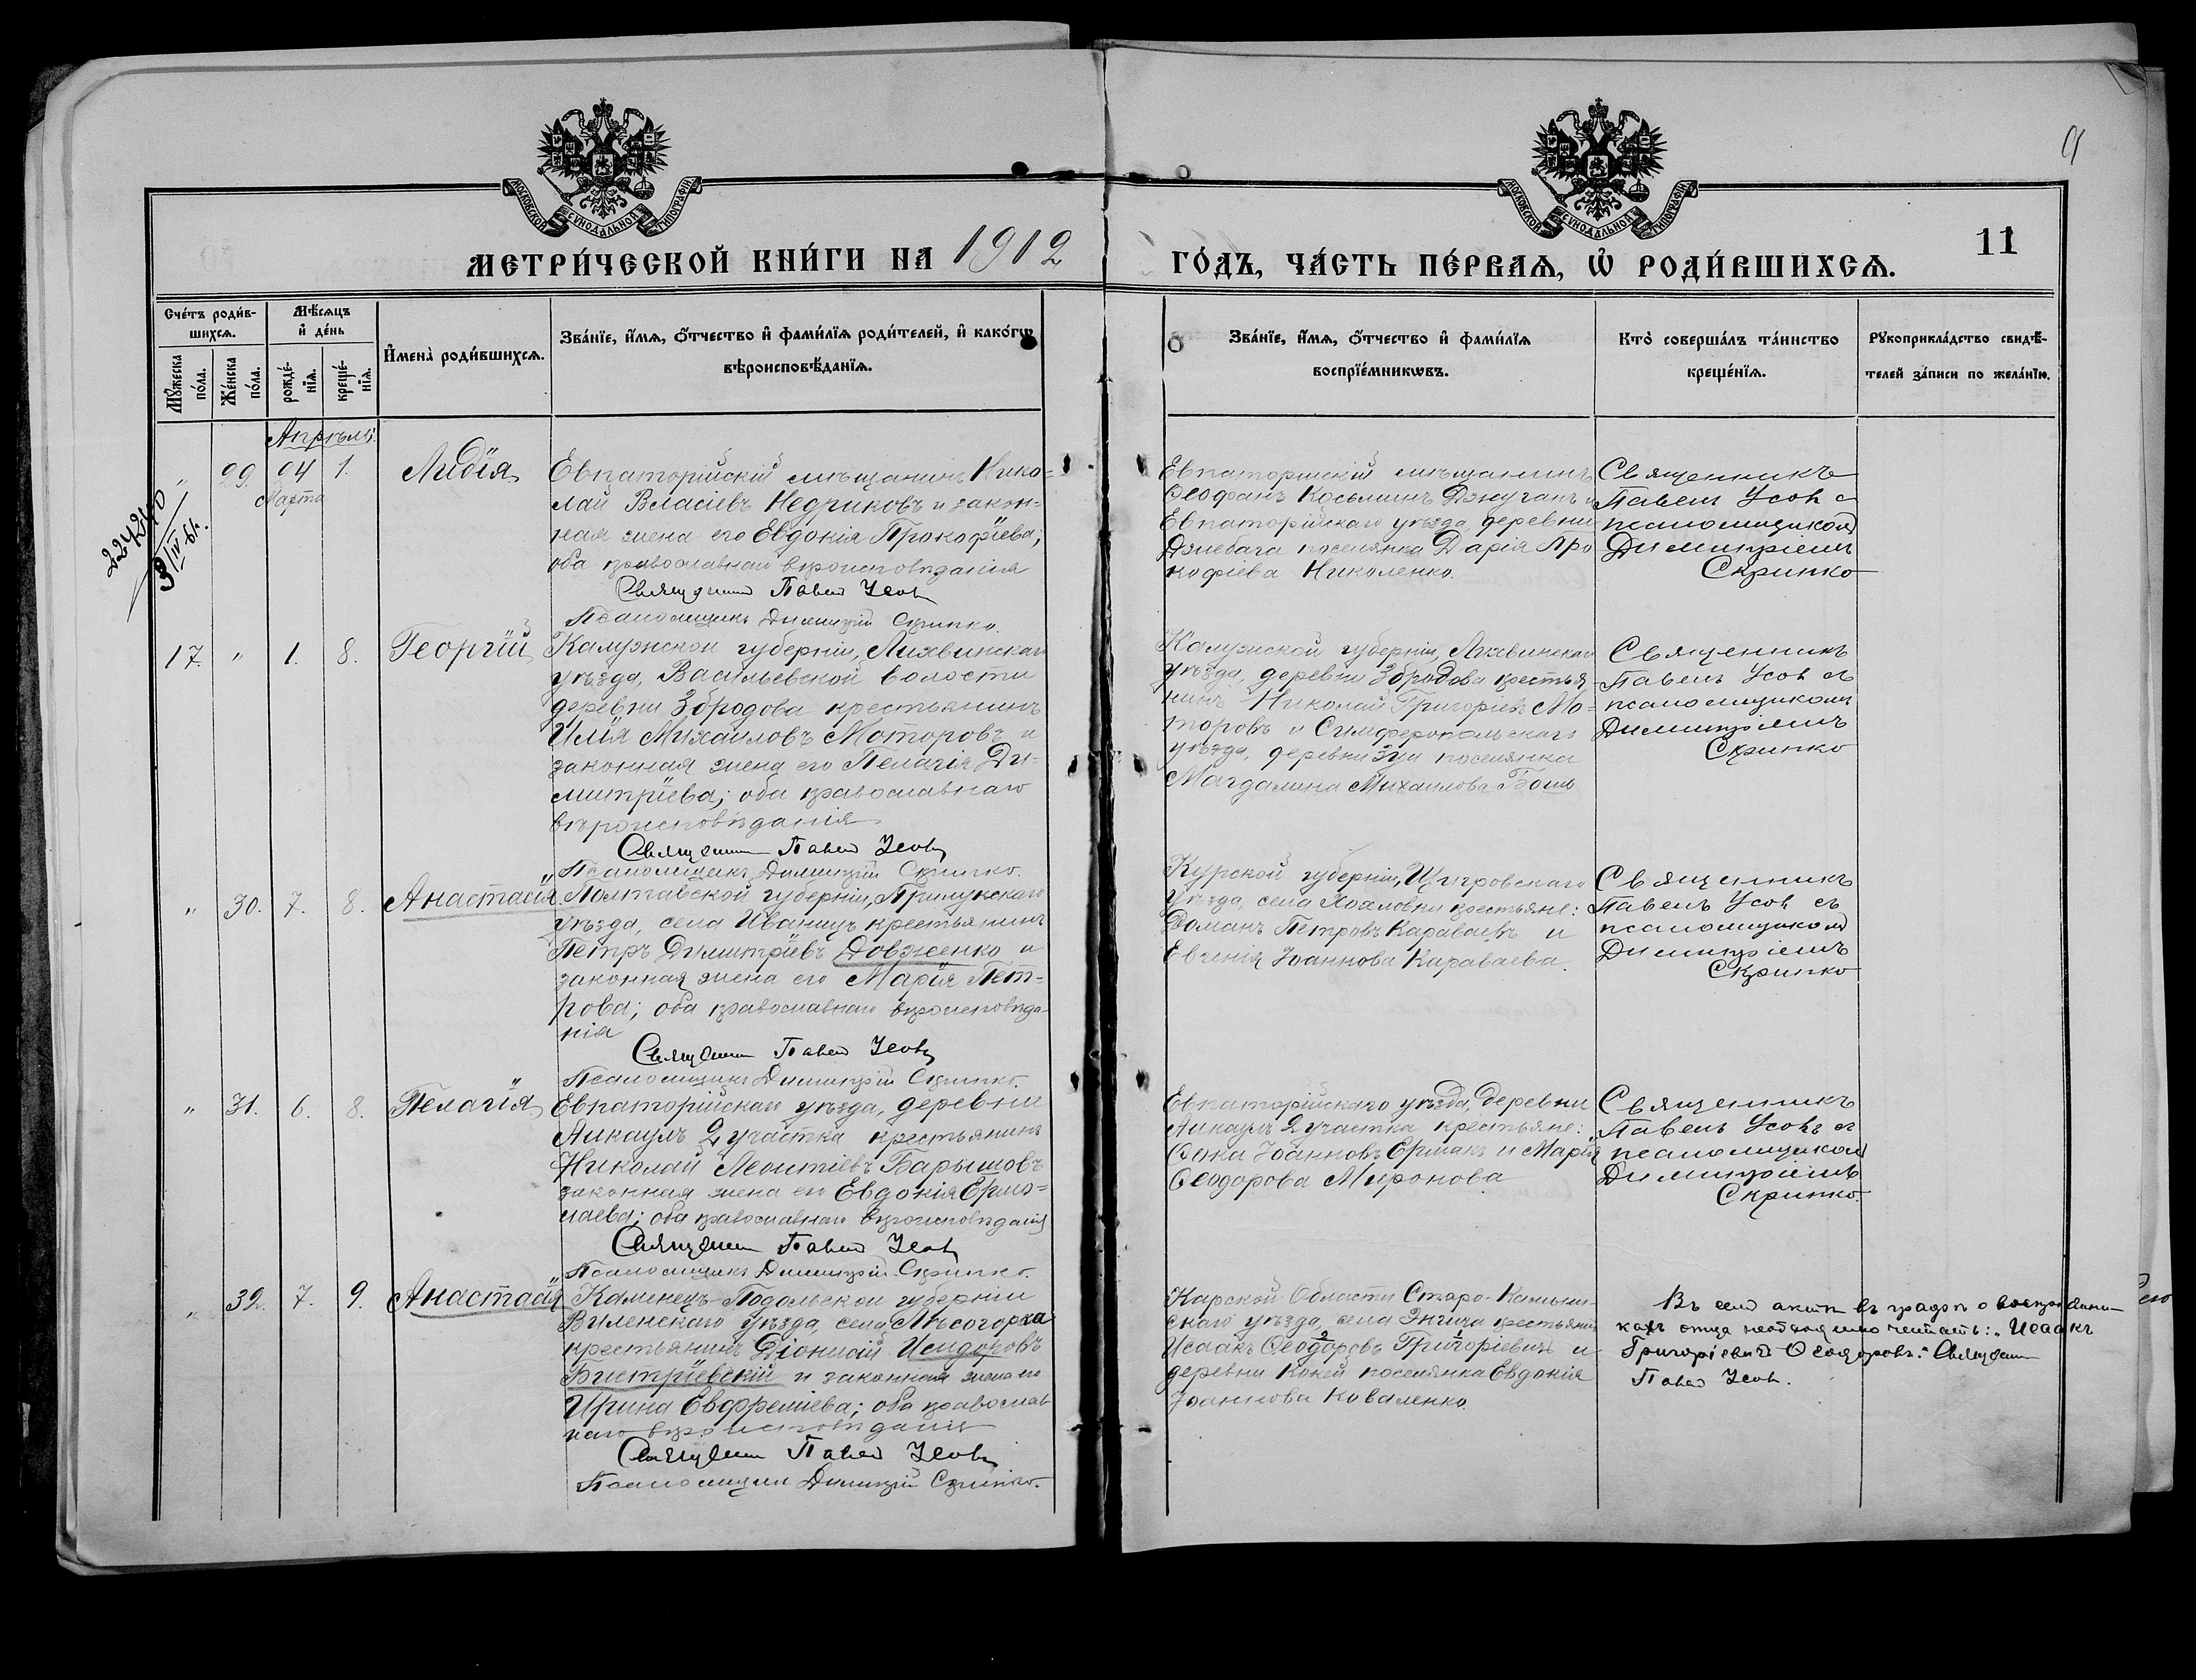 МОСКОВСКОЙ СѴНОДАЛЬНОЙ ТИПОГРАФІИ
МОСКОВСКОЙ СѴНОДАЛЬНОЙ ТИПОГРАФІИ
МЕТРИ́ЧЕСКОЙ КНИ́ГИ НА 1912
ГО́ДЪ, ЧА́СТЬ ПЕ́РВАѦ, Ѡ҆ РОДИ́ВШИХСѦ.
11
Сче́тъ роди́в-
шихсѧ.
Мꙋ́жеска
по́ла.
Же́нска
по́ла.
Мѣ́сѧцъ
и҆ де́нь
рожде́-
нїѧ.
креще́-
нїѧ.
И҆мена̀ роди́вшихсѧ.
Зва́нїе, и҆́мѧ, ѻ҆́тчество и҆ фами́лїѧ роди́телей, и҆ како́гѡ
вѣроисповѣ́данїѧ.
Зва́нїе, и҆́мѧ, ѻ҆́тчество и҆ фами́лїѧ
воспрїе́мникѡвъ.
Кто̀ соверша́лъ та́инство
креще́нїѧ.
Рꙋкоприкла́дство свидѣ́-
телей за́писи по жела́нїю.
Апрѣль
" 29. 24 1.
Марта
Лидія
Евпаторійскій мѣщанинъ Нико-
лай Власіевъ Недриковъ и закон-
ная жена его Евдокія Прокофіева;
оба православнаго вѣроисповѣданія
Священникъ Павелъ Усовъ
Псаломщикъ Димитрій Скрипко.
Евпаторійскій мѣщанинъ
Ѳеофанъ Косьминъ и
Евпаторійскаго уѣзда, деревни
поселянка Дарія Про
кофіева Николенко.
Священникъ
Павелъ Усовъ съ
псаломщикомъ
Димитріемъ
Скрипко
17. " 1. 8.
Георгій
Калужской губерніи, Лихвинскаго
уѣзда, Васильевской волости
деревни Збродова крестьянинъ
Илія Михаиловъ Моторовъ и
законная жена его Пелагія Ди-
митріева; оба православнаго
вѣроисповѣданія
Священникъ Павелъ Усовъ
Псаломщикъ Димитрій Скрипко.
Калужской губерніи, Лихвинскаго
уѣзда, деревни Збродова крестья-
нинъ Николай Григоріевъ Мо-
торовъ и Симферопольскаго
уѣзда, деревни Зуи поселянка
Магдалина Михаилова
Священникъ
Павелъ Усовъ съ
псаломщикомъ
Димитріемъ
Скрипко
" 30. 7. 8.
Анастасія
Полтавской губерніи, Прилукскаго
уѣзда, села Иваницъ крестьянинъ
Петръ Димитріевъ Довженко и
законная жена его Марія Пет-
рова; оба православнаго вѣроисповѣда-
нія
Священникъ Павелъ Усовъ
Псаломщикъ Димитрій Скрипко.
Курской губерніи, Щигровскаго
уѣзда, села Хохловки крестьяне:
Романъ Петровъ Караваевъ и
Евгенія Іоаннова Караваева.
Священникъ
Павелъ Усовъ съ
псаломщикомъ
Димитріемъ
Скрипко
" 31. 6. 8.
Пелагія
Евпаторійскаго уѣзда, деревни
Аикаулъ 2 участка крестьянинъ
Николай Леонтіевъ Барышовъ
законная жена его Евдокія Ермо-
лаева; оба православнаго вѣроисповѣданія
Священникъ Павелъ Усовъ
Псаломщикъ Димитрій Скрипко.
Евпаторійскаго уѣзда, деревни
Аикаулъ 2 участка крестьяне:
Іоанновъ Ермакъ и Марія
Ѳеодорова Миронова
Священникъ
Павелъ Усовъ съ
псаломщикомъ
Димитріемъ
Скрипко.
" 32. 7. 9.
Анастасія
Каменецъ-Подольской губерніи
уѣзда, села Лѣсогорка
крестьянинъ Діонисій Исидоровъ
Бистріевскій и законная жена его
Ирина Евфреміева; оба православ-
наго вѣроисповѣданія
Священникъ Павелъ Усовъ
Псаломщикъ Димитрій Скрипко.
Карской Области
уѣзда, села крестьянинъ
Исаакъ Ѳеодоровъ Григоріевичъ и
деревни поселянка Евдокія
Іоаннова Коваленко.
Въ семъ актѣ въ графѣ о воспріемни-
кахъ отца необходимо читать: "Исаакъ
Григоріевичъ Ѳеодоровъ." Священникъ
Павелъ Усовъ.